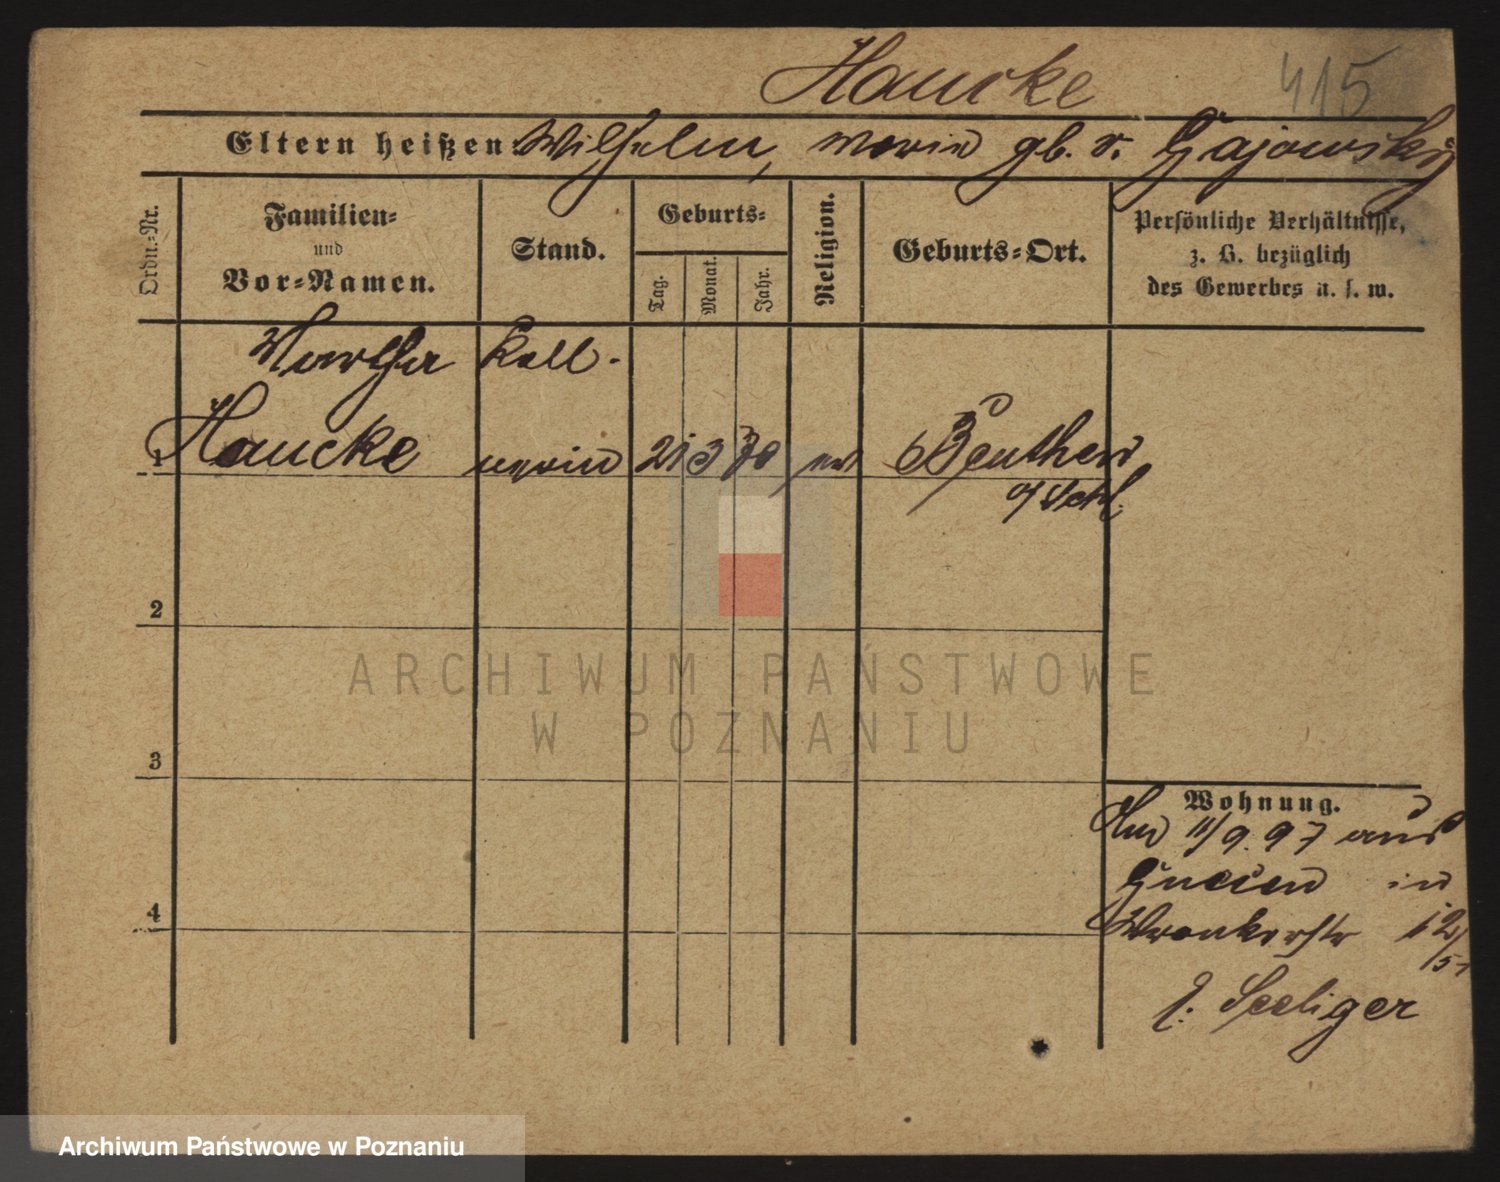 Haucke 415
Eltern heißen: Wilhelm, Marie gb. v. Gajowsky
Ordn.-Nr.
Familien-
und
Vor-Namen.
Stand.
Geburts-
Tag.
Monat.
Jahr.
Religion.
Geburts-Ort.
Persönliche Verhältnisse,
z. B. bezüglich
des Gewerbes u. s. w.
Martha Kell-
1 Haucke nerin 21 3 70 ev Beuthen
o/Schl.
2
3
4
Wohnung.
11/9. 97 aus
Gnesen in
Wronkerstr 12/
b. Seeliger
ARCHIWUM PAŃSTWOWE
W POZNANIU
Archiwum Państwowe w Poznaniu